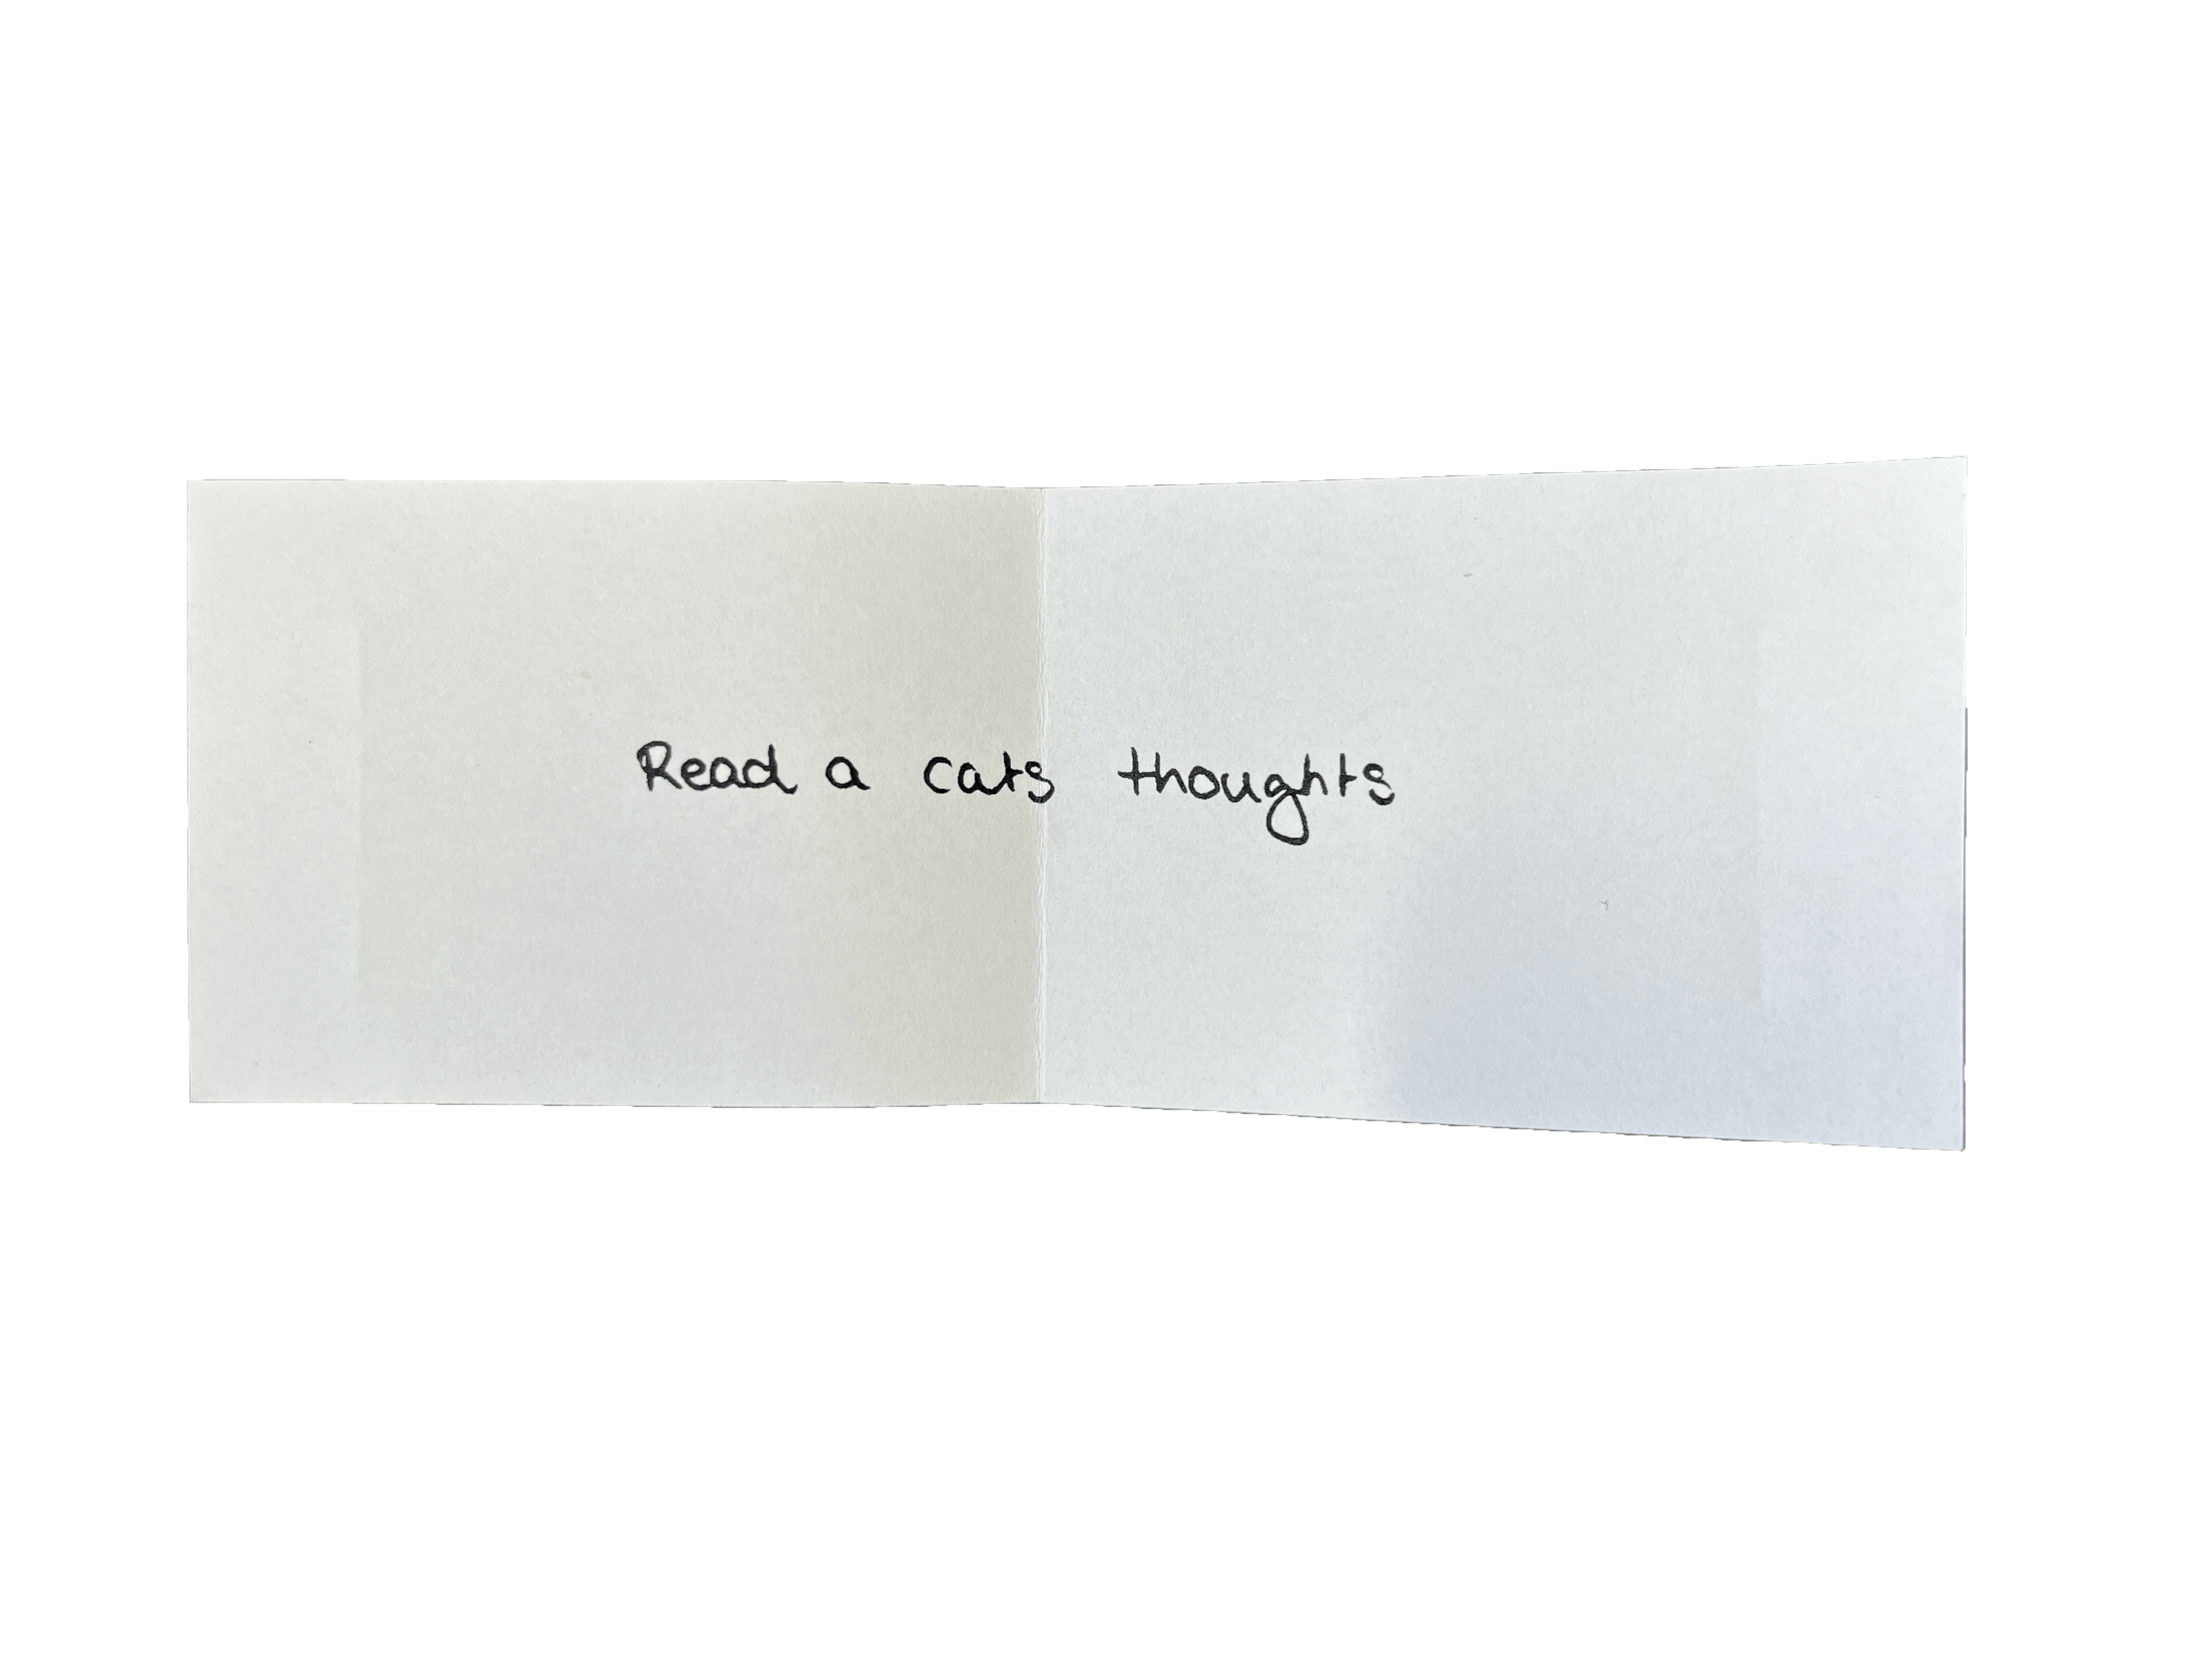 Read a cats thoughts